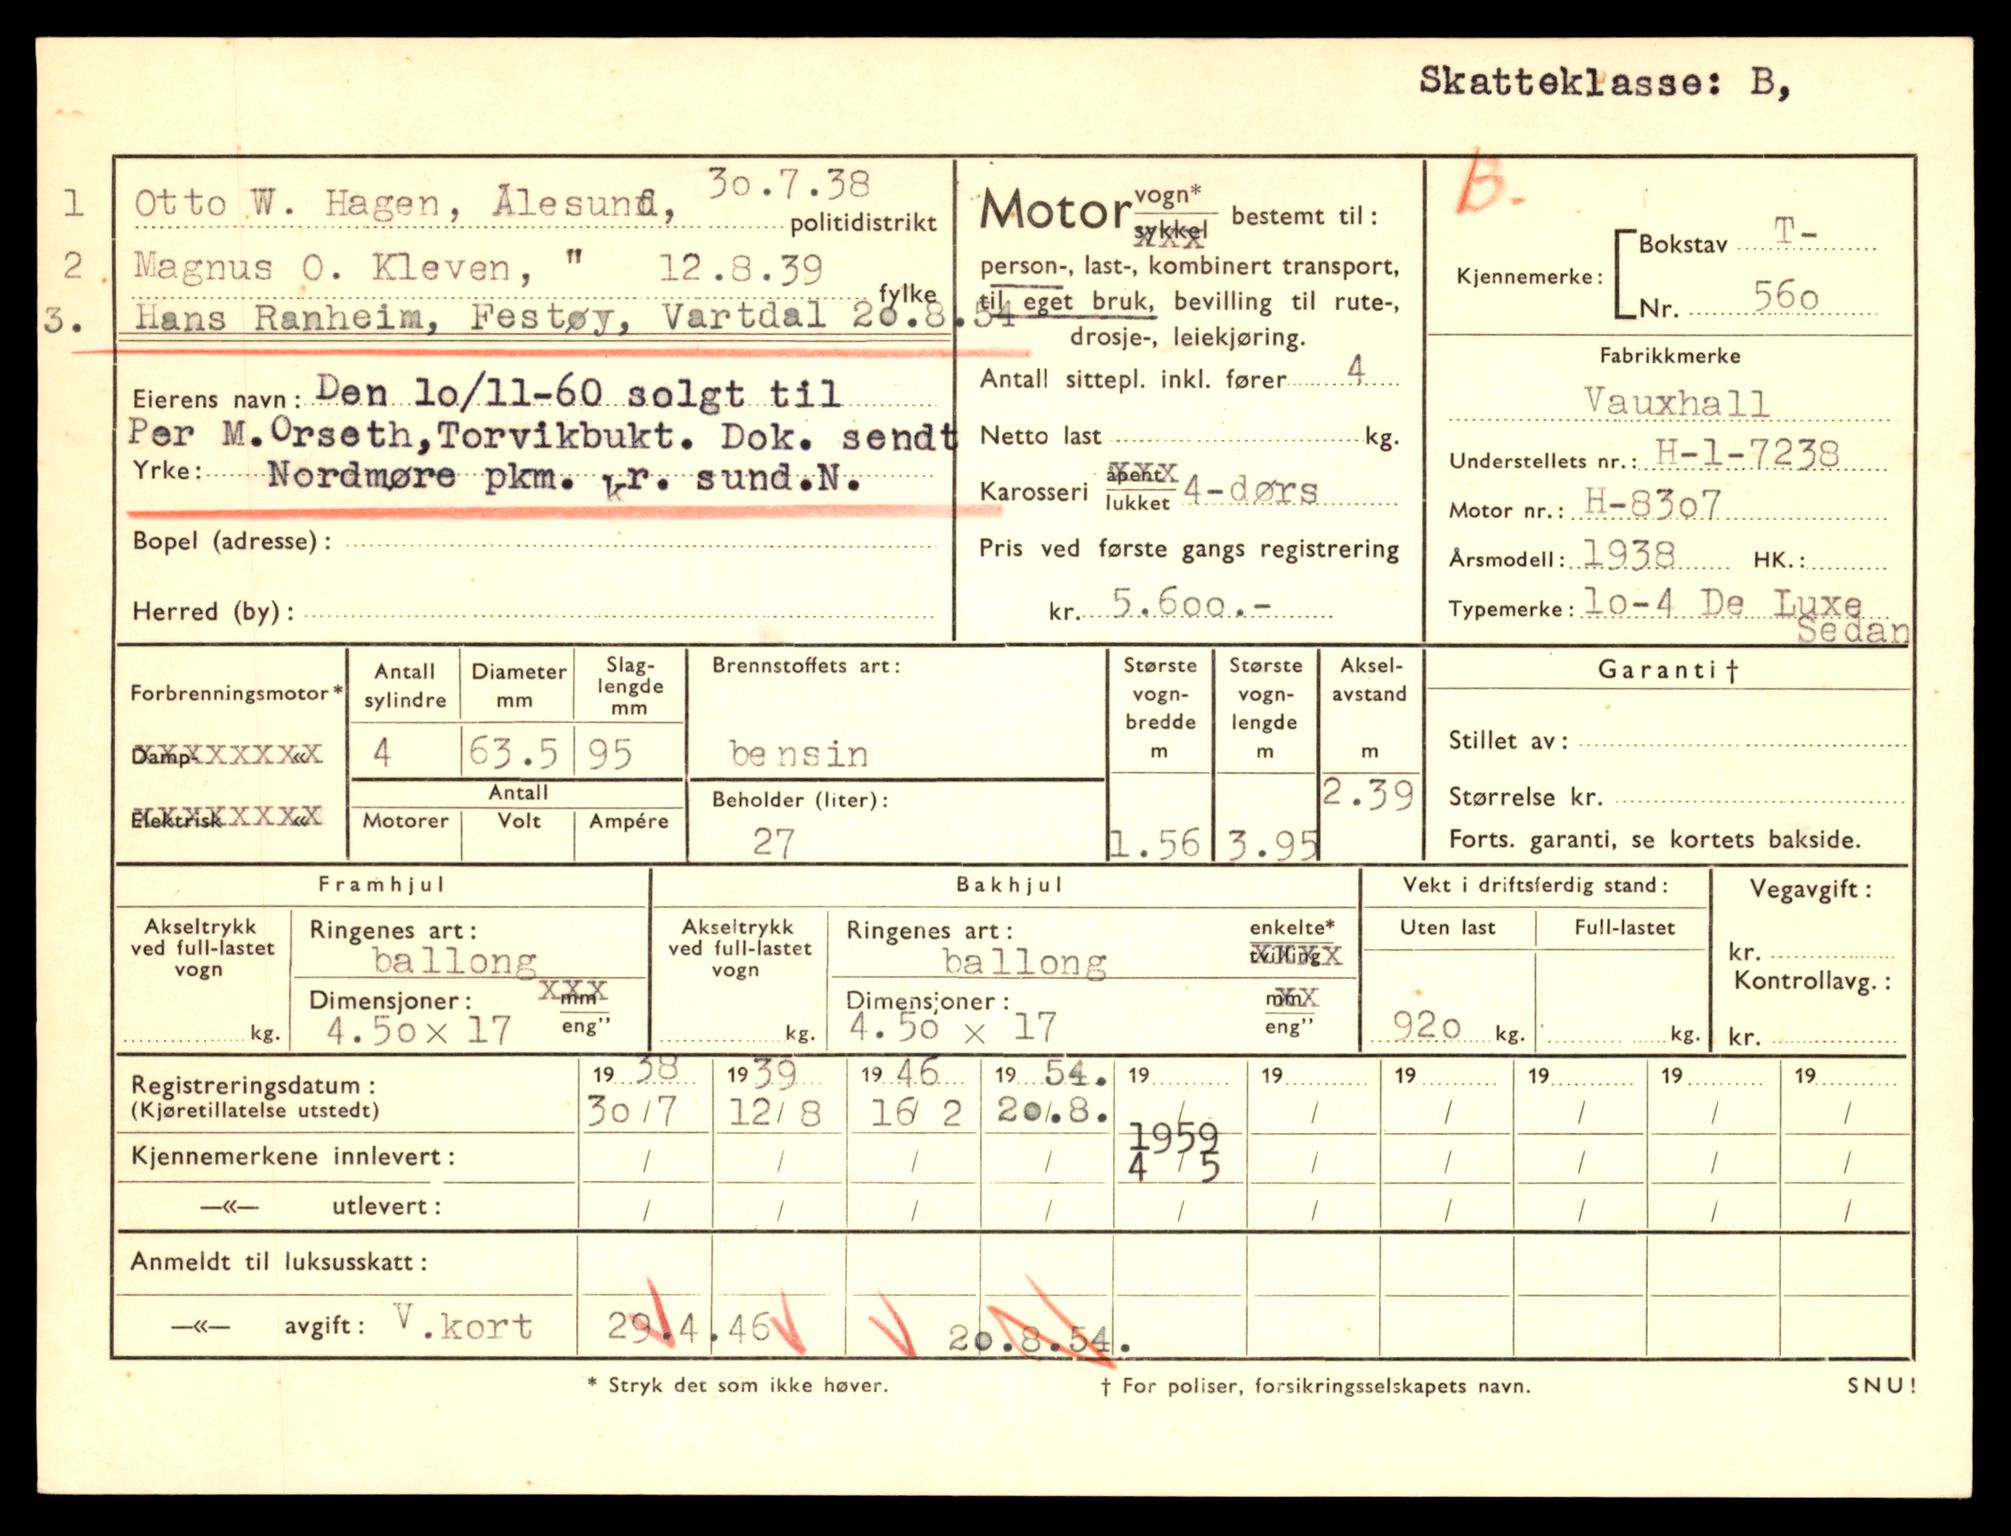 Skatteklasse: B,
1 Otto W. Hagen, Ålesund, 30.7.38
politidistrikt
2 Magnus O. Kleven, " 12.8.39
fylke
3. Hans Ranheim, Festøy, Vartdal 20.8.54
Eierens navn: Den 10/11-60 solgt til
Per M.Orseth,Torvikbukt. Dok. sendt
Yrke: Nordmøre pkm. kr. sund.N.
Bopel (adresse):
Herred (by):
Motor vogn* sykkel bestemt til:
person-, last-, kombinert transport,
til eget bruk, bevilling til rute-,
drosje-, leiekjøring.
Antall sittepl. inkl. fører 4
Netto last kg.
Karosseri åpent lukket 4-dørs
Pris ved første gangs registrering
kr. 5.600.-
B.
Kjennemerke: Bokstav T-
Nr. 560
Fabrikkmerke
Vauxhall
Understellets nr.: H-1-7238
Motor nr.: H-8307
Årsmodell: 1938 HK.:
Typemerke: 10-4 De Luxe
Sedan
Forbrenningsmotor*
Damp- «
Elektrisk «
Antall sylindre 4
Diameter mm 63.5
Slag-lengde mm 95
Antall
Motorer Volt Ampére
Brennstoffets art:
bensin
Beholder (liter):
27
Største vogn-bredde m 1.56
Største vogn-lengde m 3.95
Aksel-avstand m 2.39
Garanti †
Stillet av:
Størrelse kr.
Forts. garanti, se kortets bakside.
Framhjul
Akseltrykk ved full-lastet vogn
kg.
Ringenes art:
ballong
Dimensjoner: mm
4.50 x 17 eng"
Bakhjul
Akseltrykk ved full-lastet vogn
kg.
Ringenes art: enkelte*
ballong tvilling
Dimensjoner: mm
4.50 x 17 eng"
Vekt i driftsferdig stand:
Uten last Full-lastet
920 kg. kg.
Vegavgift:
kr.
Kontrollavg.:
kr.
Registreringsdatum: 1938 1939 1946 1954. 19 19 19 19 19 19
(Kjøretillatelse utstedt) 30/7 12/8 16/2 20/.8. / / / / / /
1959
Kjennemerkene innlevert: / / / / 4/5 / / / / /
—«— utlevert: / / / / / / / / / /
Anmeldt til luksusskatt:
—«— avgift: V.kort 29.4.46 20.8.54.
* Stryk det som ikke høver. † For poliser, forsikringsselskapets navn. SNU!